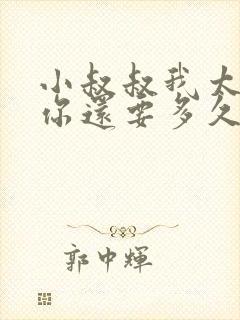 小叔叔我太
你還要多久
郭中輝